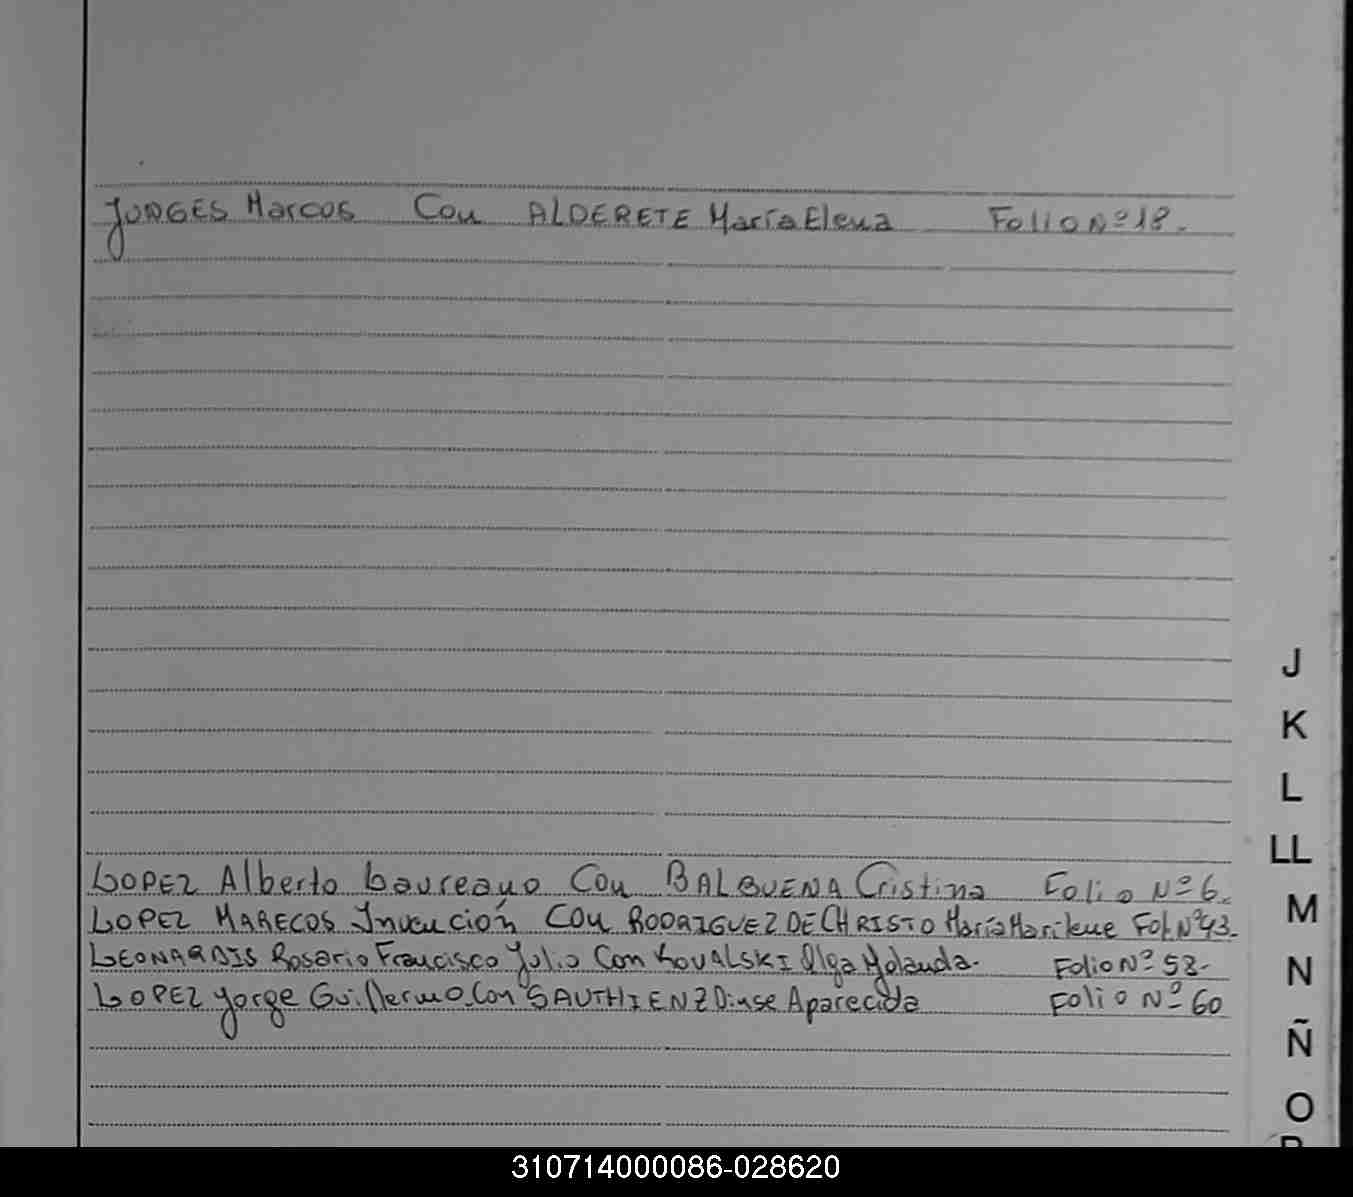 JORGES Marcos Con ALDERETE María Elena Folio Nº 18.
LOPEZ Alberto Laureano Con BALBUENA Cristina Folio Nº 6.
LOPEZ MARECOS Con RODRIGUEZ DE CHRISTO María Fol. Nº 43.
LEONARDIS Rosario Francisco Julio Con KOVALSKI Olga Yolanda. Folio Nº 58.
LOPEZ Jorge Guillermo Con SAUTHIENZ Aparecida Folio Nº 60
J
K
L
LL
M
N
Ñ
O
310714000086-028620